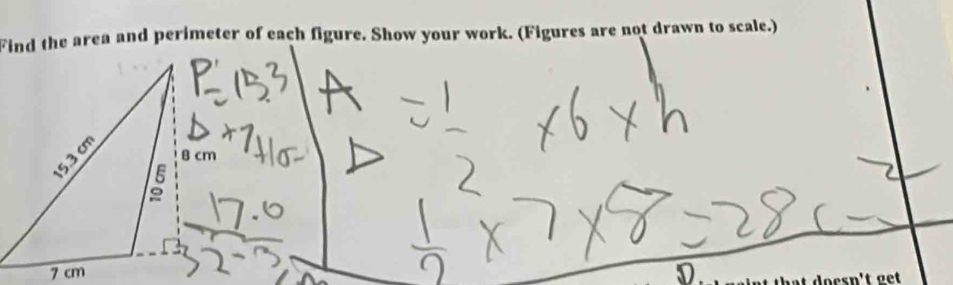 Find the area and perimeter of each figure. Show your work. (Figures are not drawn to scale.)
P = 15.3
+ 7 + 10
15.3 cm
10 cm
8 cm
17.0
32.3
7 cm
A = 1/2 × b × h
1/2 × 7 × 8 = 28 c
that doesn't get